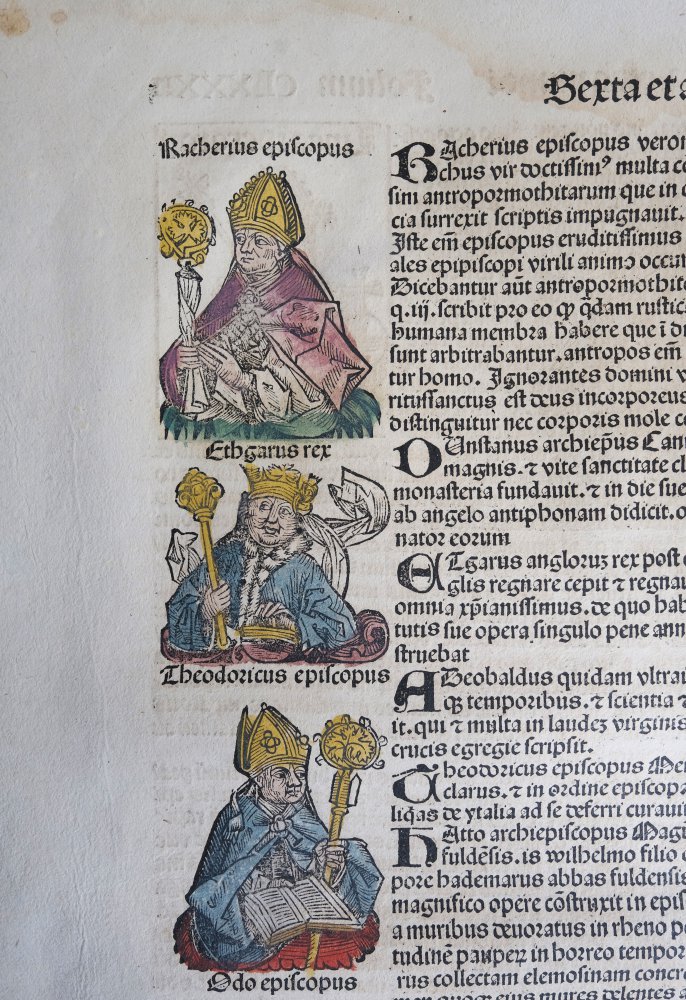 Sexta et
Racherius episcopus
Ethgarus rex
Theodoricus episcopus
Odo episcopus
RAcherius episcopus vero
chus vir doctissimꝰ multa
sini antropormothitarum que in
cia surrexit scriptis impugnauit.
Iste em̄ episcopus eruditissimus
ales epipiscopi virili animo
Dicebantur aūt
q. iij. scribit pro eo ꝙ q̄dam
humana membra habere que ī
sunt arbitrabantur. antropos em̄
tur homo. Ignorantes domini
ritussanctus est deus incorporeus
distinguitur nec corporis mole
DUnstanus archiep̄us
magnis. ⁊ vite sanctitate
monasteria fundauit. ⁊ in die
ab angelo antiphonam didicit.
nator eorum
ETgarus angloruꝫ rex post
glis regnare cepit ⁊
omnia xp̄ianissimus. de quo
tutis sue opera singulo pene
struebat
ABeobaldus quidam
qꝫ temporibus. ⁊ scientia ⁊
it. qui ⁊ multa in laudeꝫ
crucis egregie scripsit.
Theodoricus episcopus
clarus. ⁊ in ordine
liq̄as de ytalia ad se deferri
HAtto archiepiscopus
fuldēsis. is wilhelmo filio
pore hademarus abbas
magnifico opere cōstruxit in
a muribus deuoratus in rheno
tudinē pauperꝫ in horreo
rus collectam elemosinam